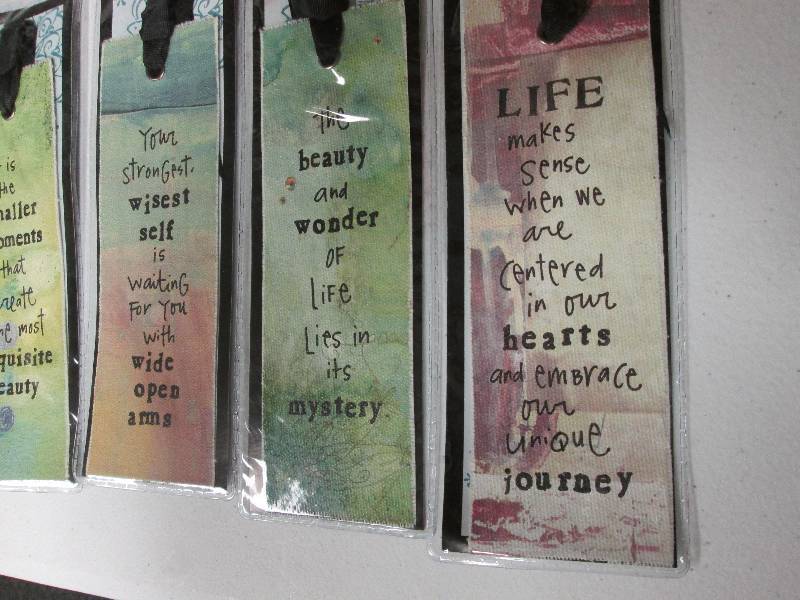 is
the
maller
oments
that
create
he most
quisite
eauty
Your
strongest,
wisest
self
is
waiting
For You
with
wide
open
arms
the
beauty
and
wonder
OF
LiFe
Lies in
its
mystery.
LIFE
makes
sense
when we
are
centered
in our
hearts
and embrace
our
unique
journey